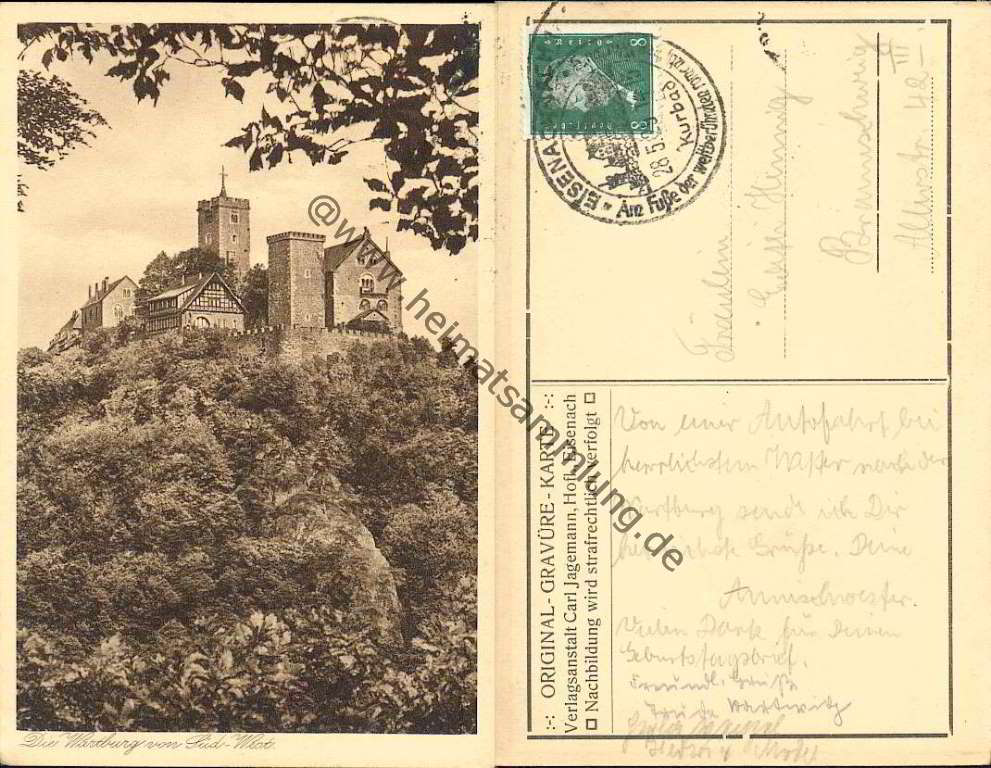 Die Wartburg von Süd-West.
@www.heimatsammlung.de
8
EISENACH
28.5.
Kurbad
Am Fuße der weltberühmten Wartburg
Fräulein
Henning
Braunschweig
III
42
:-: ORIGINAL-GRAVÜRE-KARTE :-:
Verlagsanstalt Carl Jagemann, Hofl., Eisenach
□ Nachbildung wird strafrechtlich verfolgt □
Von einer Autofahrt bei
herrlichstem Wetter nach der
Wartburg sende ich Dir
herzlichste Grüße. Deine
Annischwester.
Vielen Dank für Deinen
Geburtstagsbrief.
Freundl. Grüße